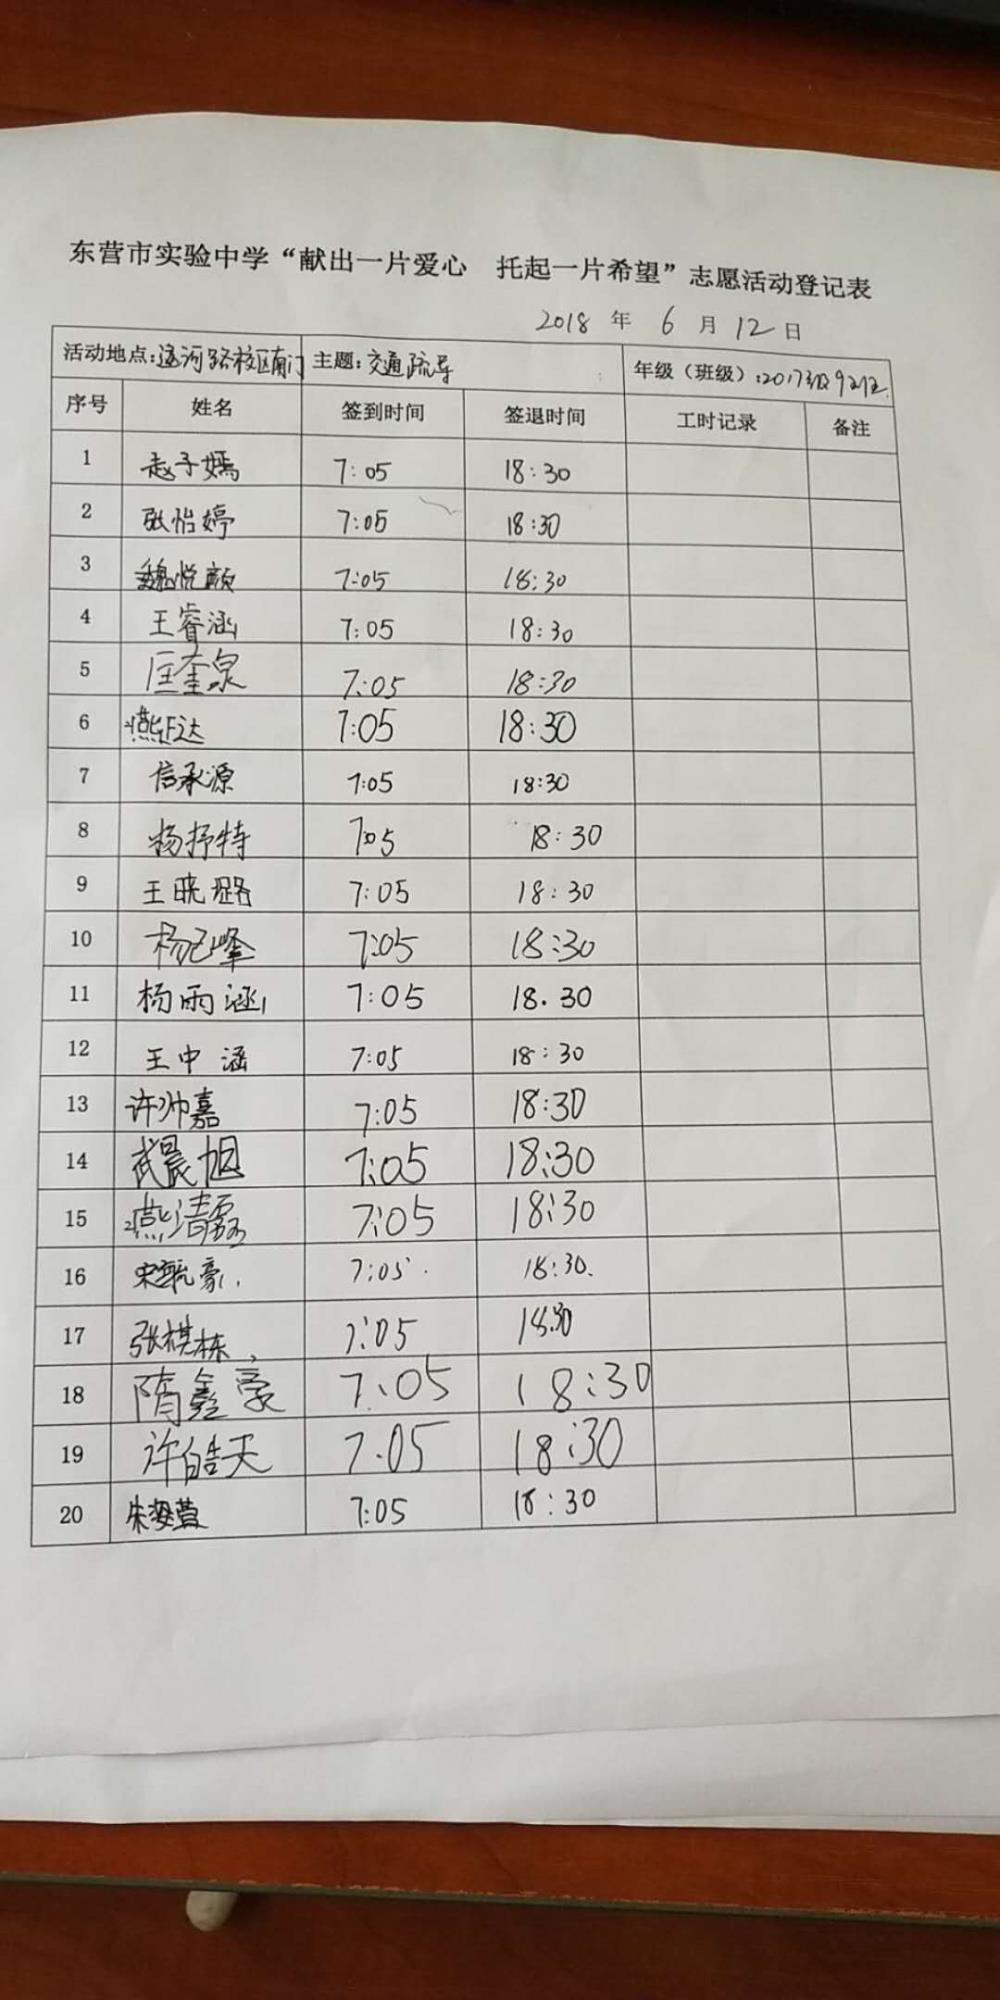 东营市实验中学“献出一片爱心 托起一片希望”志愿活动登记表
2018 年 6 月 12 日
活动地点:辽河路校区南门 主题:交通疏导 年级(班级):2017级9班
序号 姓名 签到时间 签退时间 工时记录 备注
1 赵子嫣 7:05 18:30
2 张怡婷 7:05 18:30
3 魏悦颜 7:05 18:30
4 王睿涵 7:05 18:30
5 匡奎泉 7:05 18:30
6 7:05 18:30
7 信承源 7:05 18:30
8 杨抒特 7:05 18:30
9 王晓璐 7:05 18:30
10 杨己峰 7:05 18:30
11 杨雨涵 7:05 18.30
12 王中涵 7:05 18:30
13 许帅嘉 7:05 18:30
14 武晨旭 7:05 18:30
15 7:05 18:30
16 7:05 18:30
17 张棋栋 7:05 18:30
18 隋鑫豪 7:05 18:30
19 许皓天 7:05 18:30
20 7:05 18:30